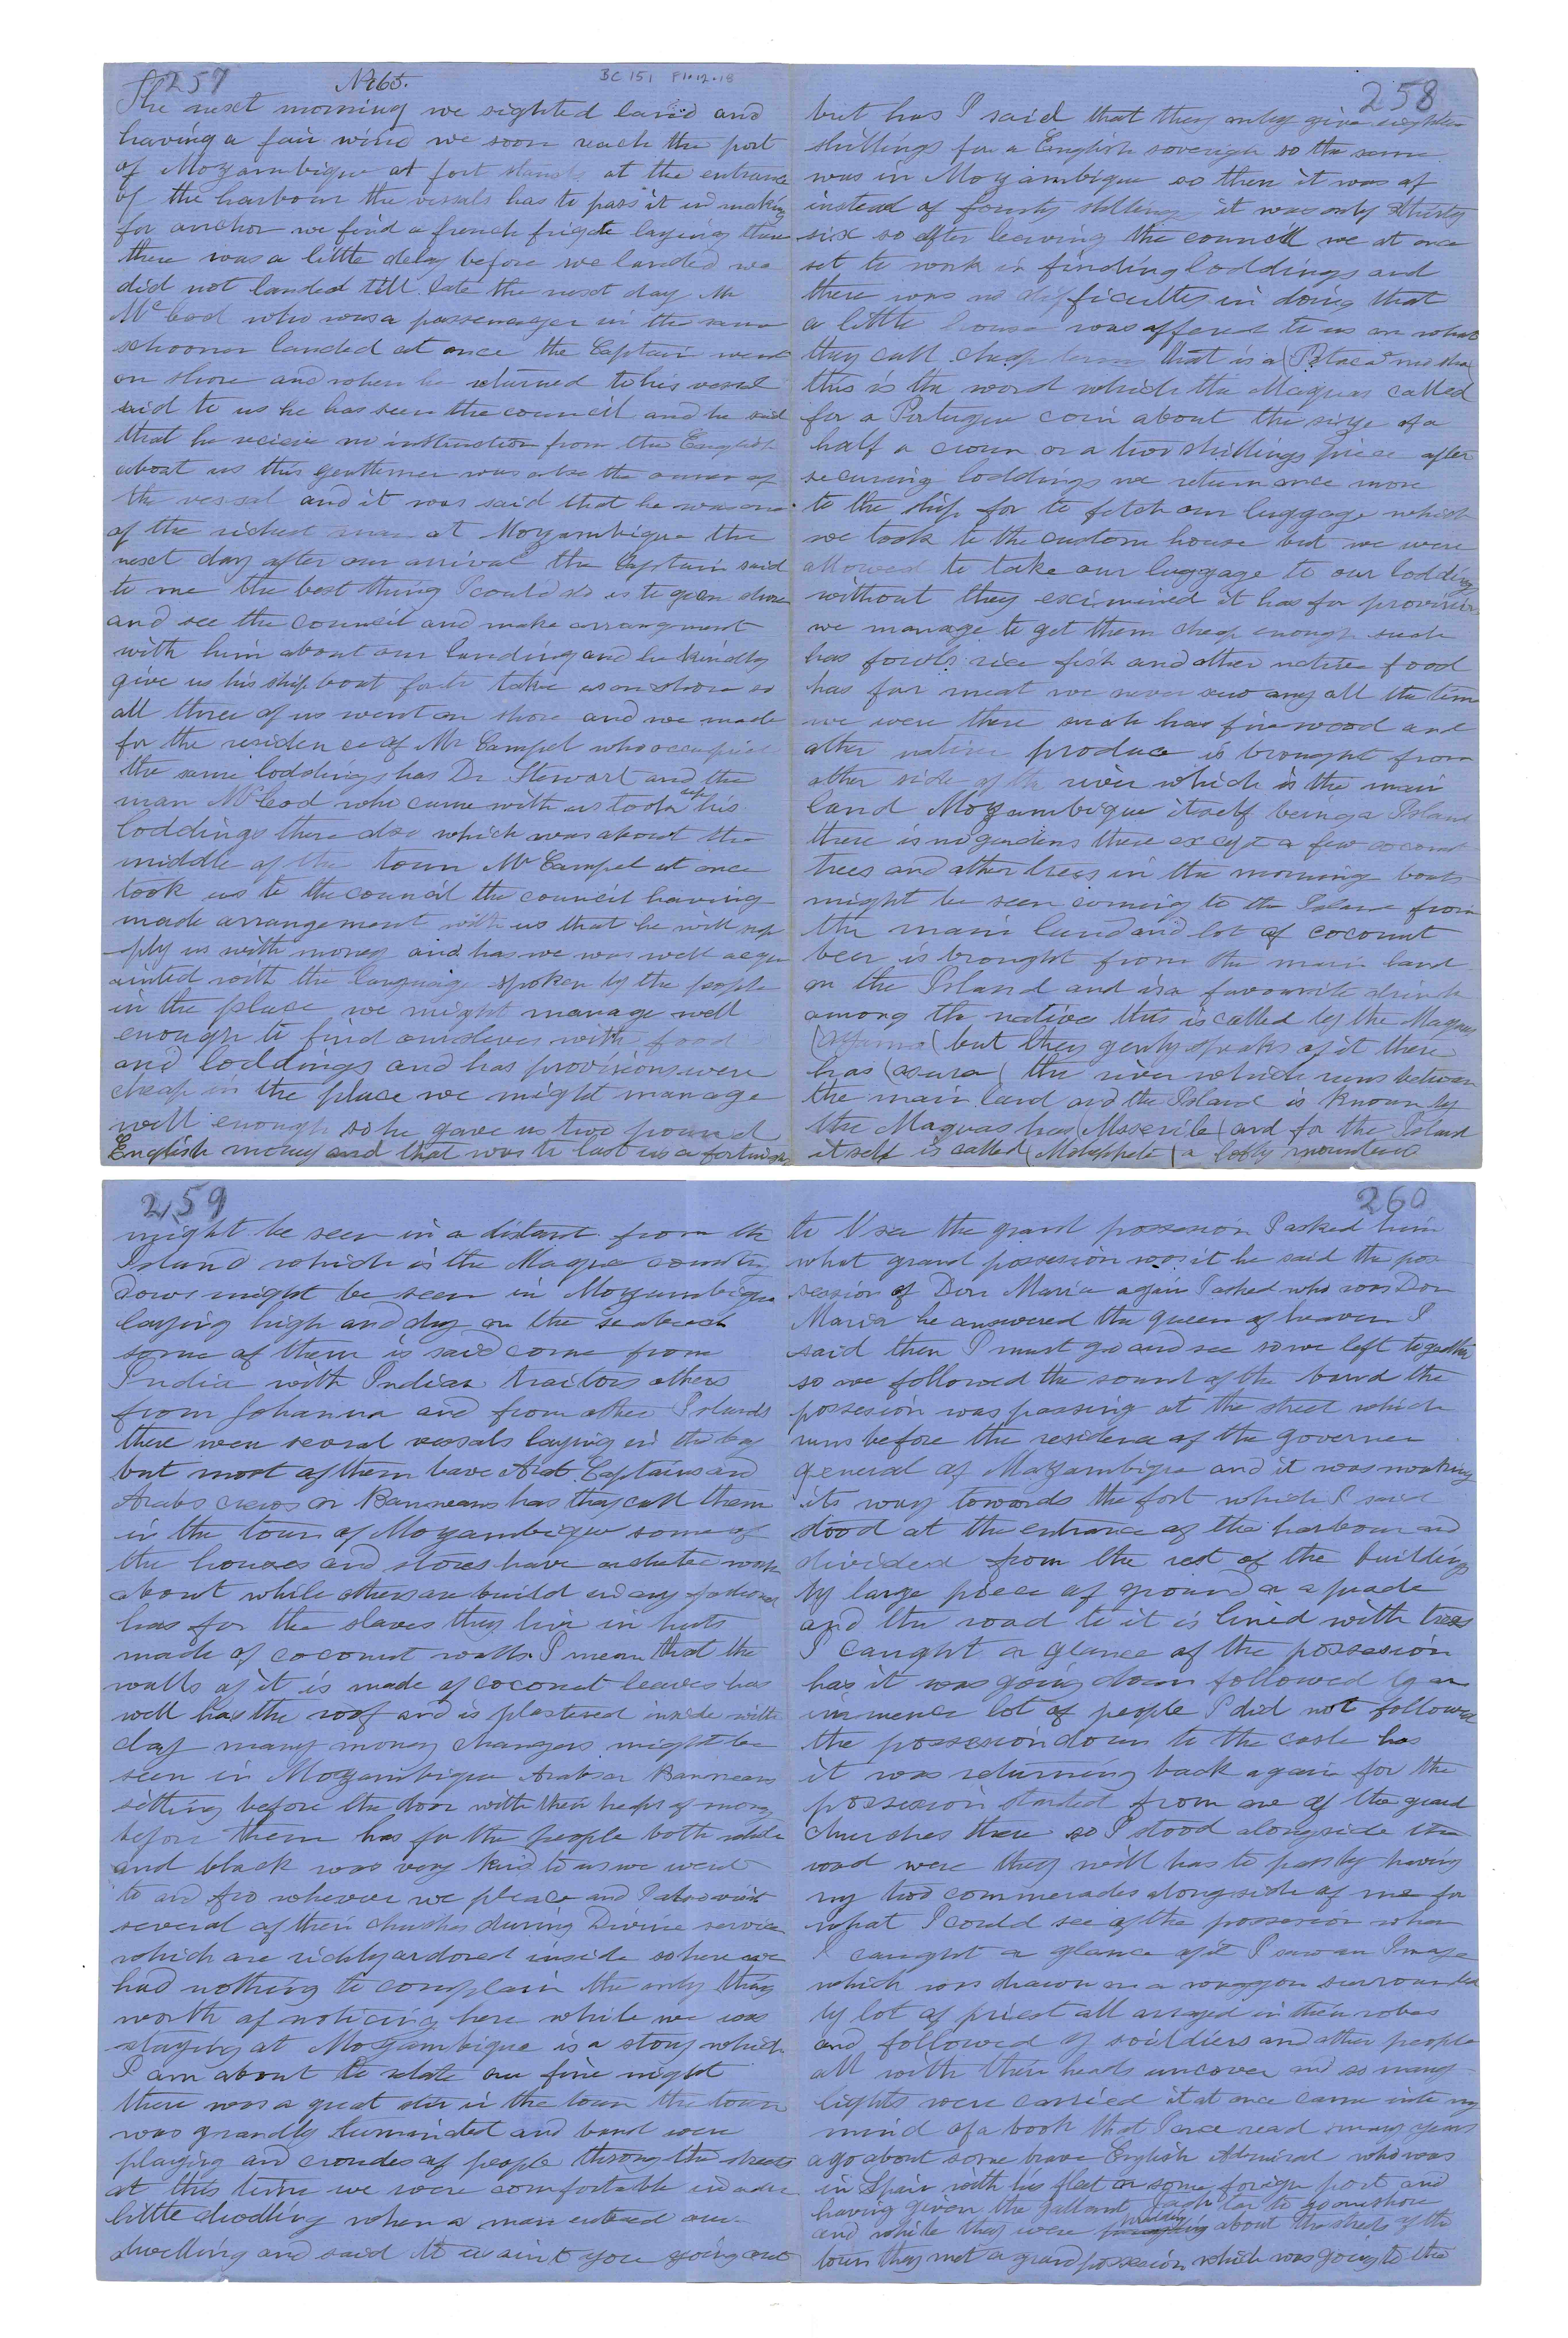 257 No 65. BC 151 F1.12.18
The next morning we sighted land and
having a fair wind we soon reach the port
of Mozambique at fort stands at the entrance
of the harbour the vessals has to pass it in making
for anchor we find a french frigate laying there
there was a little delay before we landed we
did not landed till late the next day Mr
McLeod who was a passenager in the same
schooner landed at once the Captain went
on shore and when he returned to his vessel
said to us he has seen the council and he said
that he recieve no instruction from the English
about us this gentlemen was also the owner of
the vessal and it was said that he was one
of the richest man at Mozambique the
next day after our arrival the Captain said
to me the best thing I could do is to go on shore
and see the council and make arrangment
with him about our landing and he kindly
give us his ship boat for to take us on shore so
all three of us went on shore and we made
for the residence of Mr Campel who occupied
the same loddings has Dr Stewart and the
man McLeod who came with us took up his
loddings there also which was about the
middle of the town Mr Campel at once
took us to the council the council having
made arrangement with us that he will sup
-ply us with money and has we was well acqu
ainted with the language spoken by the people
in the place we might manage well
enough to find ourselves with food
and loddings and has provisions were
cheap in the place we might manage
well enough so he gave us two pound
English money and that was to last us a fortnight
258
but has I said that they only give eighteen
shillings for a English soverign so the same
was in Mozambique so then it was of
instead of fourty shillings it was only thirty
six so after leaving the council we at once
set to work in finding loddings and
there was no difficulties in doing that
a little house was offered to us on what
they call cheap terms that is a (Pataca
this is the word which the Maquas called
for a Portugue coin about the size of a
half a crown or a two shillings piece after
securing loddings we return once more
to the ship for to fetch our luggage which
we took to the custom house but we were
allowed to take our luggage to our loddings
without they excimined it has for provisions
we manage to get them cheap enough such
has fowls rice fish and other native food
has for meat we never saw any all the time
we were there such has fire wood and
other native produce is brought from
other side of the river which is the main
land Mozambique itself being a Island
there is no gardens there except a few coconut
trees and other trees in the morning boats
might be seen coming to the Island from
the main land and lot of coconut
beer is brought from the main land
on the Island and is a favourite drink
among the natives this is called by the Maquas
but they genly speaks of it there
has (asura) the river which runs between
the main land and the Island is known by
the Maquas has and for the Island
itself is called a lofty mountain
259
might be seen in a distant from the
Island which is the Maqua country
Dows might be seen in Mozambique
laying high and dry on the seabeach
some of them is said come from
India with Indian traitors others
from Johanna and from other Islands
there were several vessals laying in the bay
but most of them have Arab Captains and
Arabs crews or Banneans has they call them
in the town of Mozambique some of
the houses and stores have work
about while others are build in any fashion
has for the slaves they live in huts
made of coconut walls I mean that the
walls of it is made of coconut leaves has
well has the roof and is plastered inside with
clay many money changers might be
seen in Mozambique Arabs or Banneans
sitting before the door with their heaps of money
before them has for the people both white
and black was very kind to us we went
to and fro wherever we please and I also visit
several of their churches during Divine service
which are richly ardored inside so here we
had nothing to complain the only thing
worth of noticing here while we was
staying at Mozambique is a story which
I am about to relate one fine night
there was a great stir in the town the town
was grandly liuminated and band were
playing and croudes of people throng the streets
at this time we were comfortable in our
little dwelling when a man entered our
dwelling and said to us aint you going out
260
to see the grand possesion I asked him
what grand possesion was it he said the pos
session of Don Maria again I asked who was Don
Maria he answered the queen of heaven I
said then I must go and see so we left togather
so we followed the sound of the band the
possesion was passing at the street which
runs before the residence of the governer
general of Mozambique and it was making
its way towards the fort which I said
stood at the entrance of the harbour and
divided from the rest of the buildings
by large piece of ground or a prade
and the road to it is lined with trees
I caught a glance of the possesion
has it was going down followed by an
immence lot of people I did not followed
the possesion down to the castle has
it was returning back again for the
possesion started from one of the grand
churches there so I stood alongside the
road were they will has to pass by having
my two commerades alongside of me for
what I could see of the possesion when
I caught a glance of it I saw an Image
which was drawn on a waggon surrounded
by lot of priest all arrayed in their robes
and followed by soildiers and other people
all with their heads uncover and so many
lights were carried it at once came into my
mind of a book that I once read many years
ago about some brave English Admiral who was
in Spain with his fleat or some foreign port and
having given the gallant Jack tar to go on shore
and while they were walking about the streets of the
town they met a grand possesion which was going to the